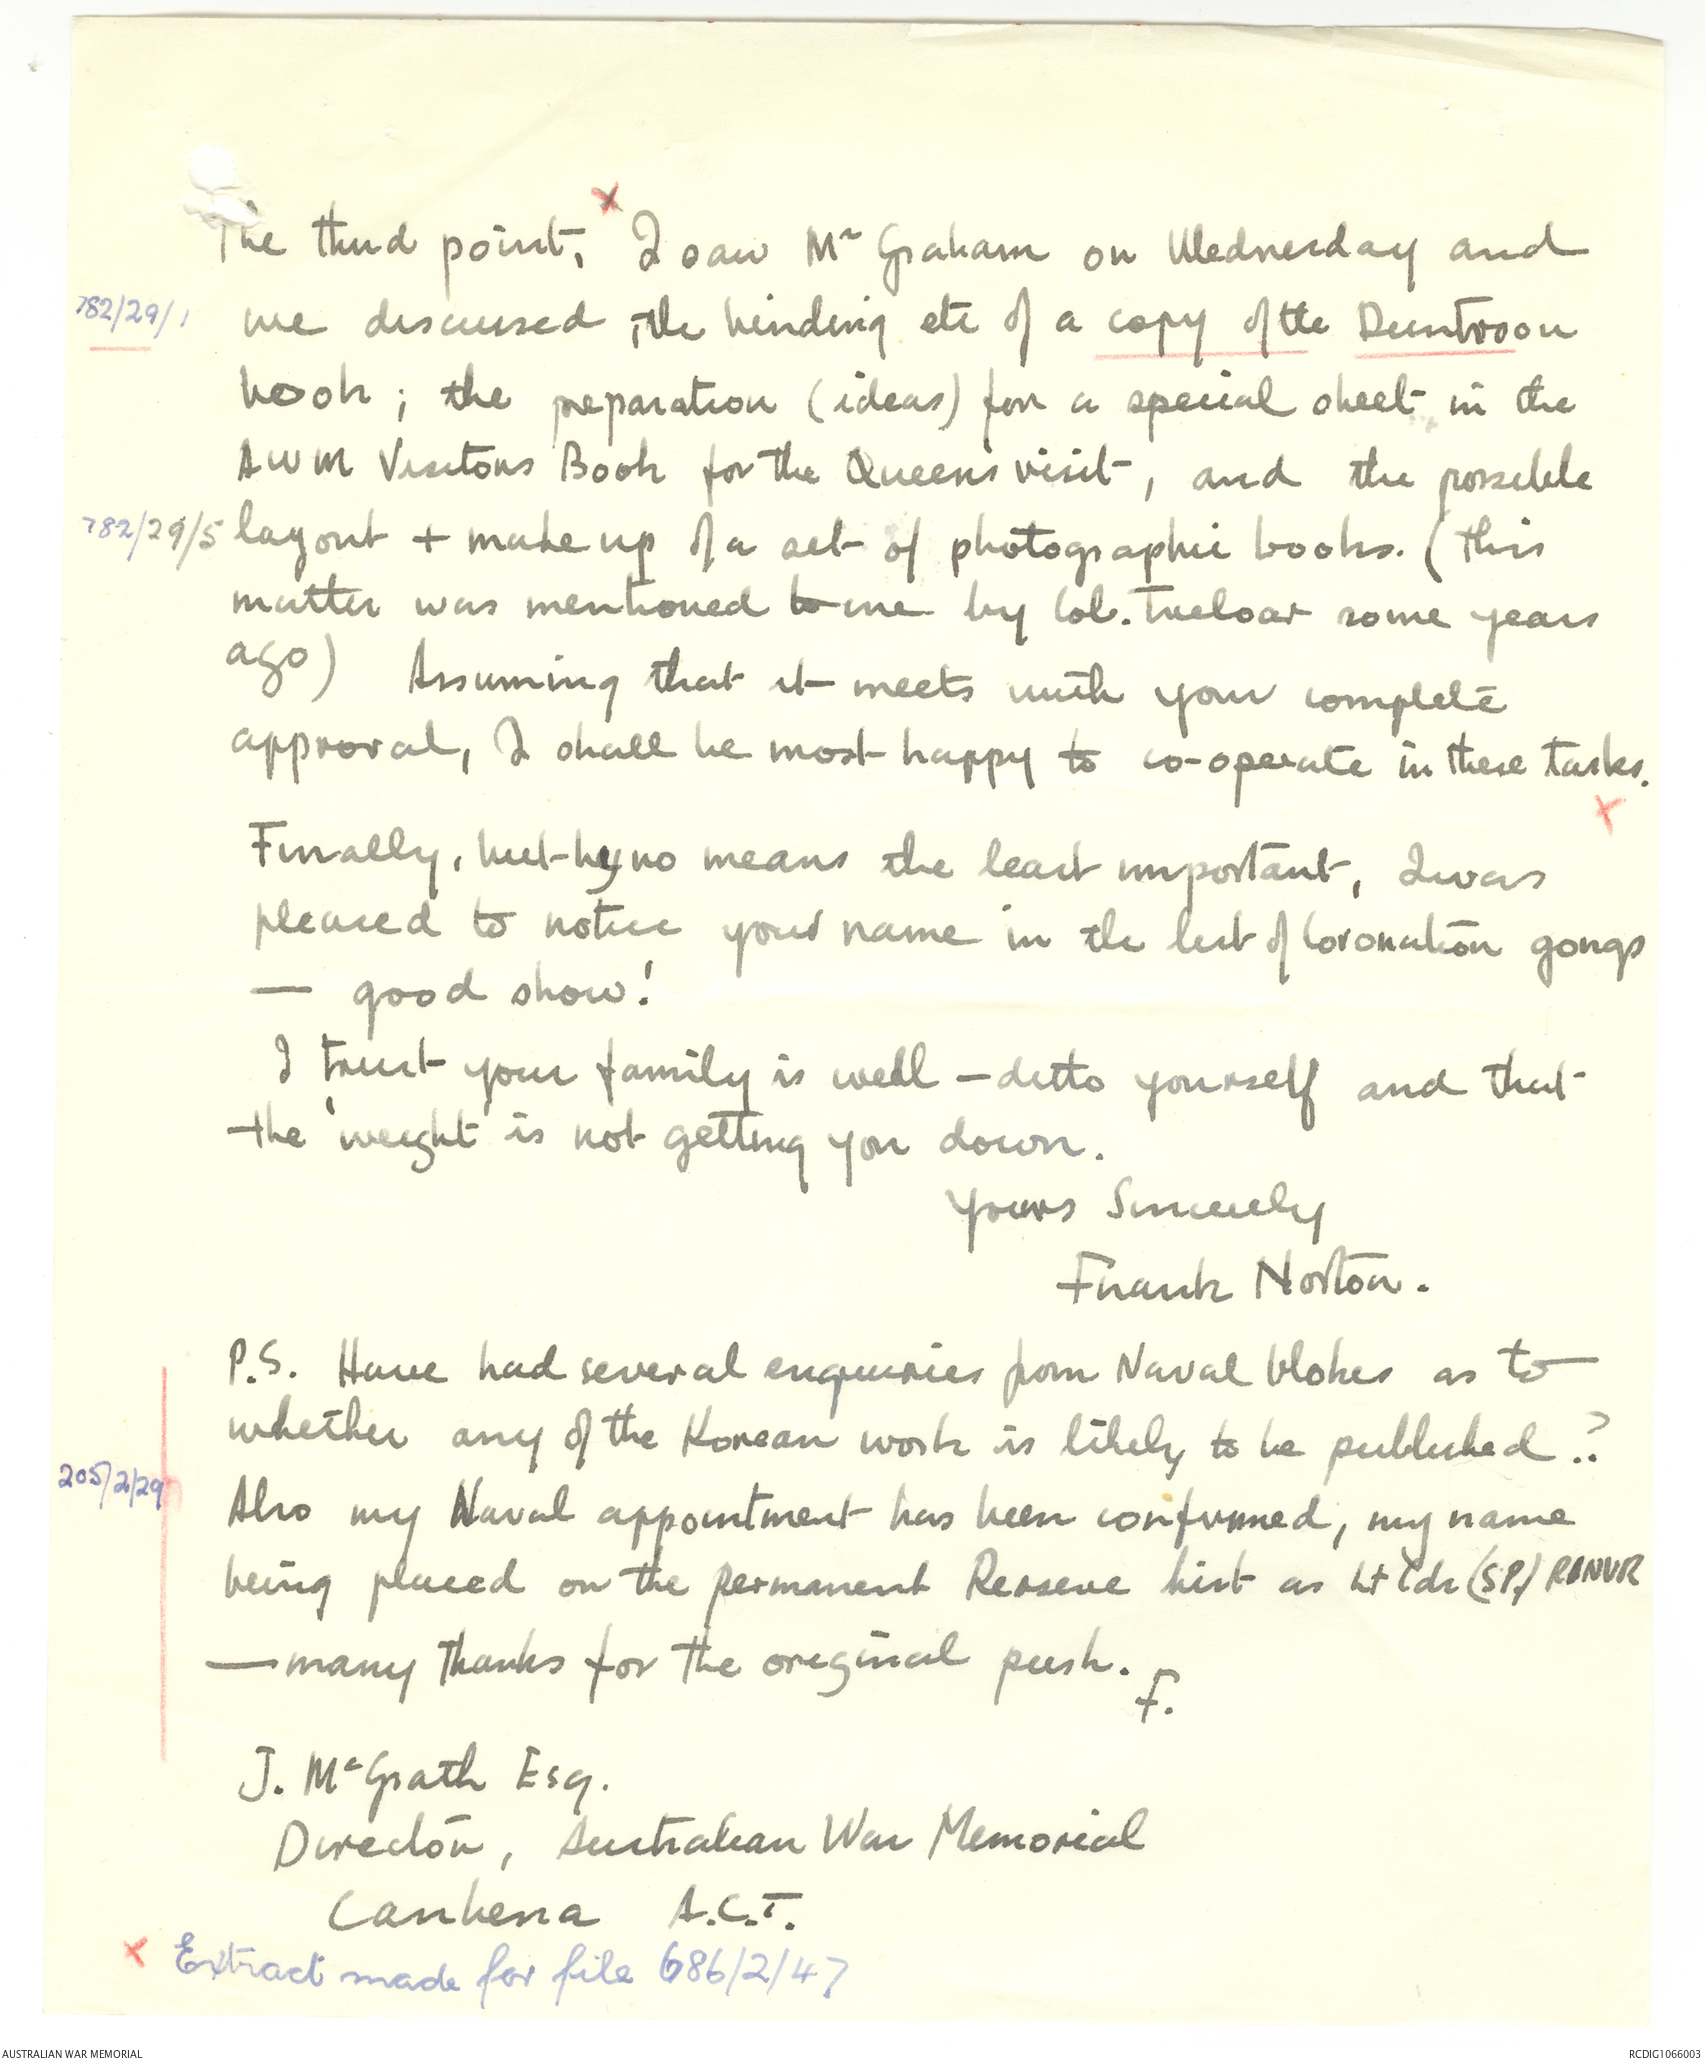 x
The third point, I saw Mr Graham on Wednesday and
782/29/1 we discussed the binding etc of a copy of the Duntroon
book; the preparation (ideas) for a special sheet in the
AWM Visitors Book for the Queens visit, and the possible
782/29/5 layout + make up of a set of photographic books. (this
matter was mentioned to me by Col. Treloar some years
ago) Assuming that it meets with your complete
approval, I shall be most happy to co-operate in these tasks.
x
Finally, but by no means the least important, I was
pleased to notice your name in the list of Coronation gongs
— good show!
I trust your family is well – ditto yourself and that
the 'weight' is not getting you down.
Yours Sincerely
Frank Norton.
P.S. Have had several enquiries from Naval blokes as to
whether any of the Korean work is likely to be published?
205/2/29
Also my Naval appointment has been confirmed, my name
being placed on the permanent Reserve list as Lt Cdr (SP.) RANVR
— many thanks for the original push.
F.
J. McGrath Esq.
Director, Australian War Memorial
Canberra A.C.T.
x Extract made for file 686/2/47
AUSTRALIAN WAR MEMORIAL RCDIG1066003